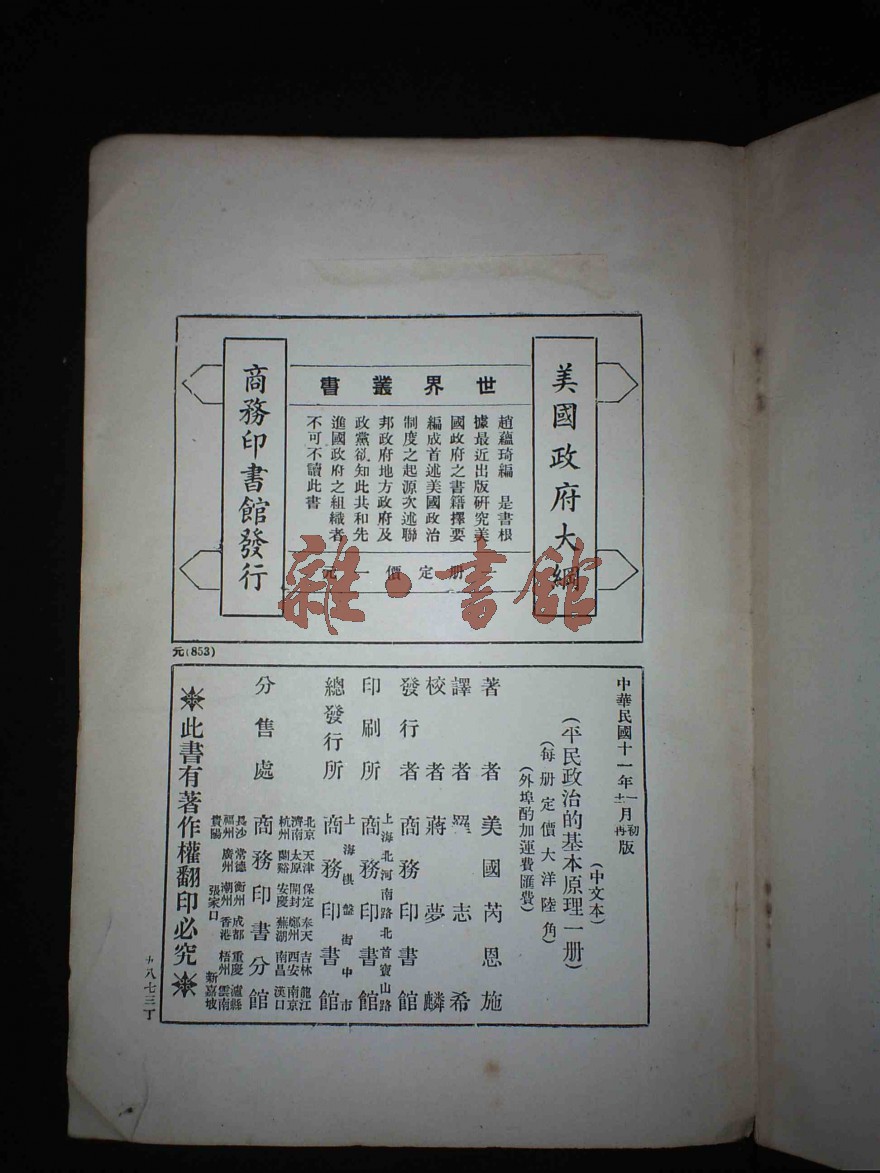 美國政府大綱
世界叢書
趙蘊琦編　是書根
據最近出版研究美
國政府之書籍擇要
編成首述美國政治
制度之起源次述聯
邦政府地方政府及
政黨欲知此共和先
進國政府之組織者
不可不讀此書
册定價一元
商務印書館發行
雜·書館
元(853)
中華民國十一年十一月再初版
(中文本)
(平民政治的基本原理一册)
(每册定價大洋陸角)
(外埠酌加運費匯費)
著者　美國芮恩施
譯者　羅志希
校者　蔣夢麟
發行者　商務印書館
上海北河南路北首寶山路
印刷所　商務印書館
上海棋盤街中市
總發行所　商務印書館
北京　天津　保定　奉天　吉林　龍江
濟南　太原　開封　鄭州　西安　南京
杭州　蘭谿　安慶　蕪湖　南昌　漢口
分售處　商務印書分館
長沙　常德　衡州　成都　重慶　瀘縣
福州　廣州　潮州　香港　梧州　雲南
貴陽　張家口　新嘉坡
此書有著作權翻印必究
八七三丁